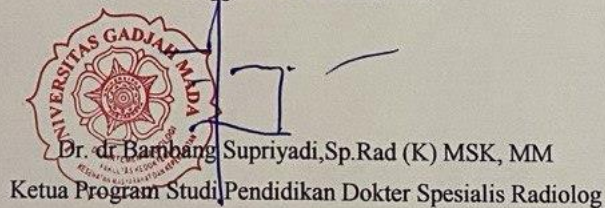 UNIVERSITAS GADJAH MADA
Dr. dr Bambang Supriyadi,Sp.Rad (K) MSK, MM
Ketua Program Studi Pendidikan Dokter Spesialis Radiolog